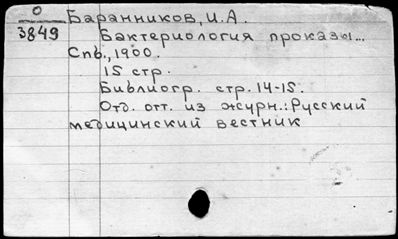 О
3849
Баранников, И.А.
Бактериология проказы...
Спб., 1900.
15 стр.
Библиогр. стр. 14-15.
Отд. отт. из журн.: Русский
медицинский вестник